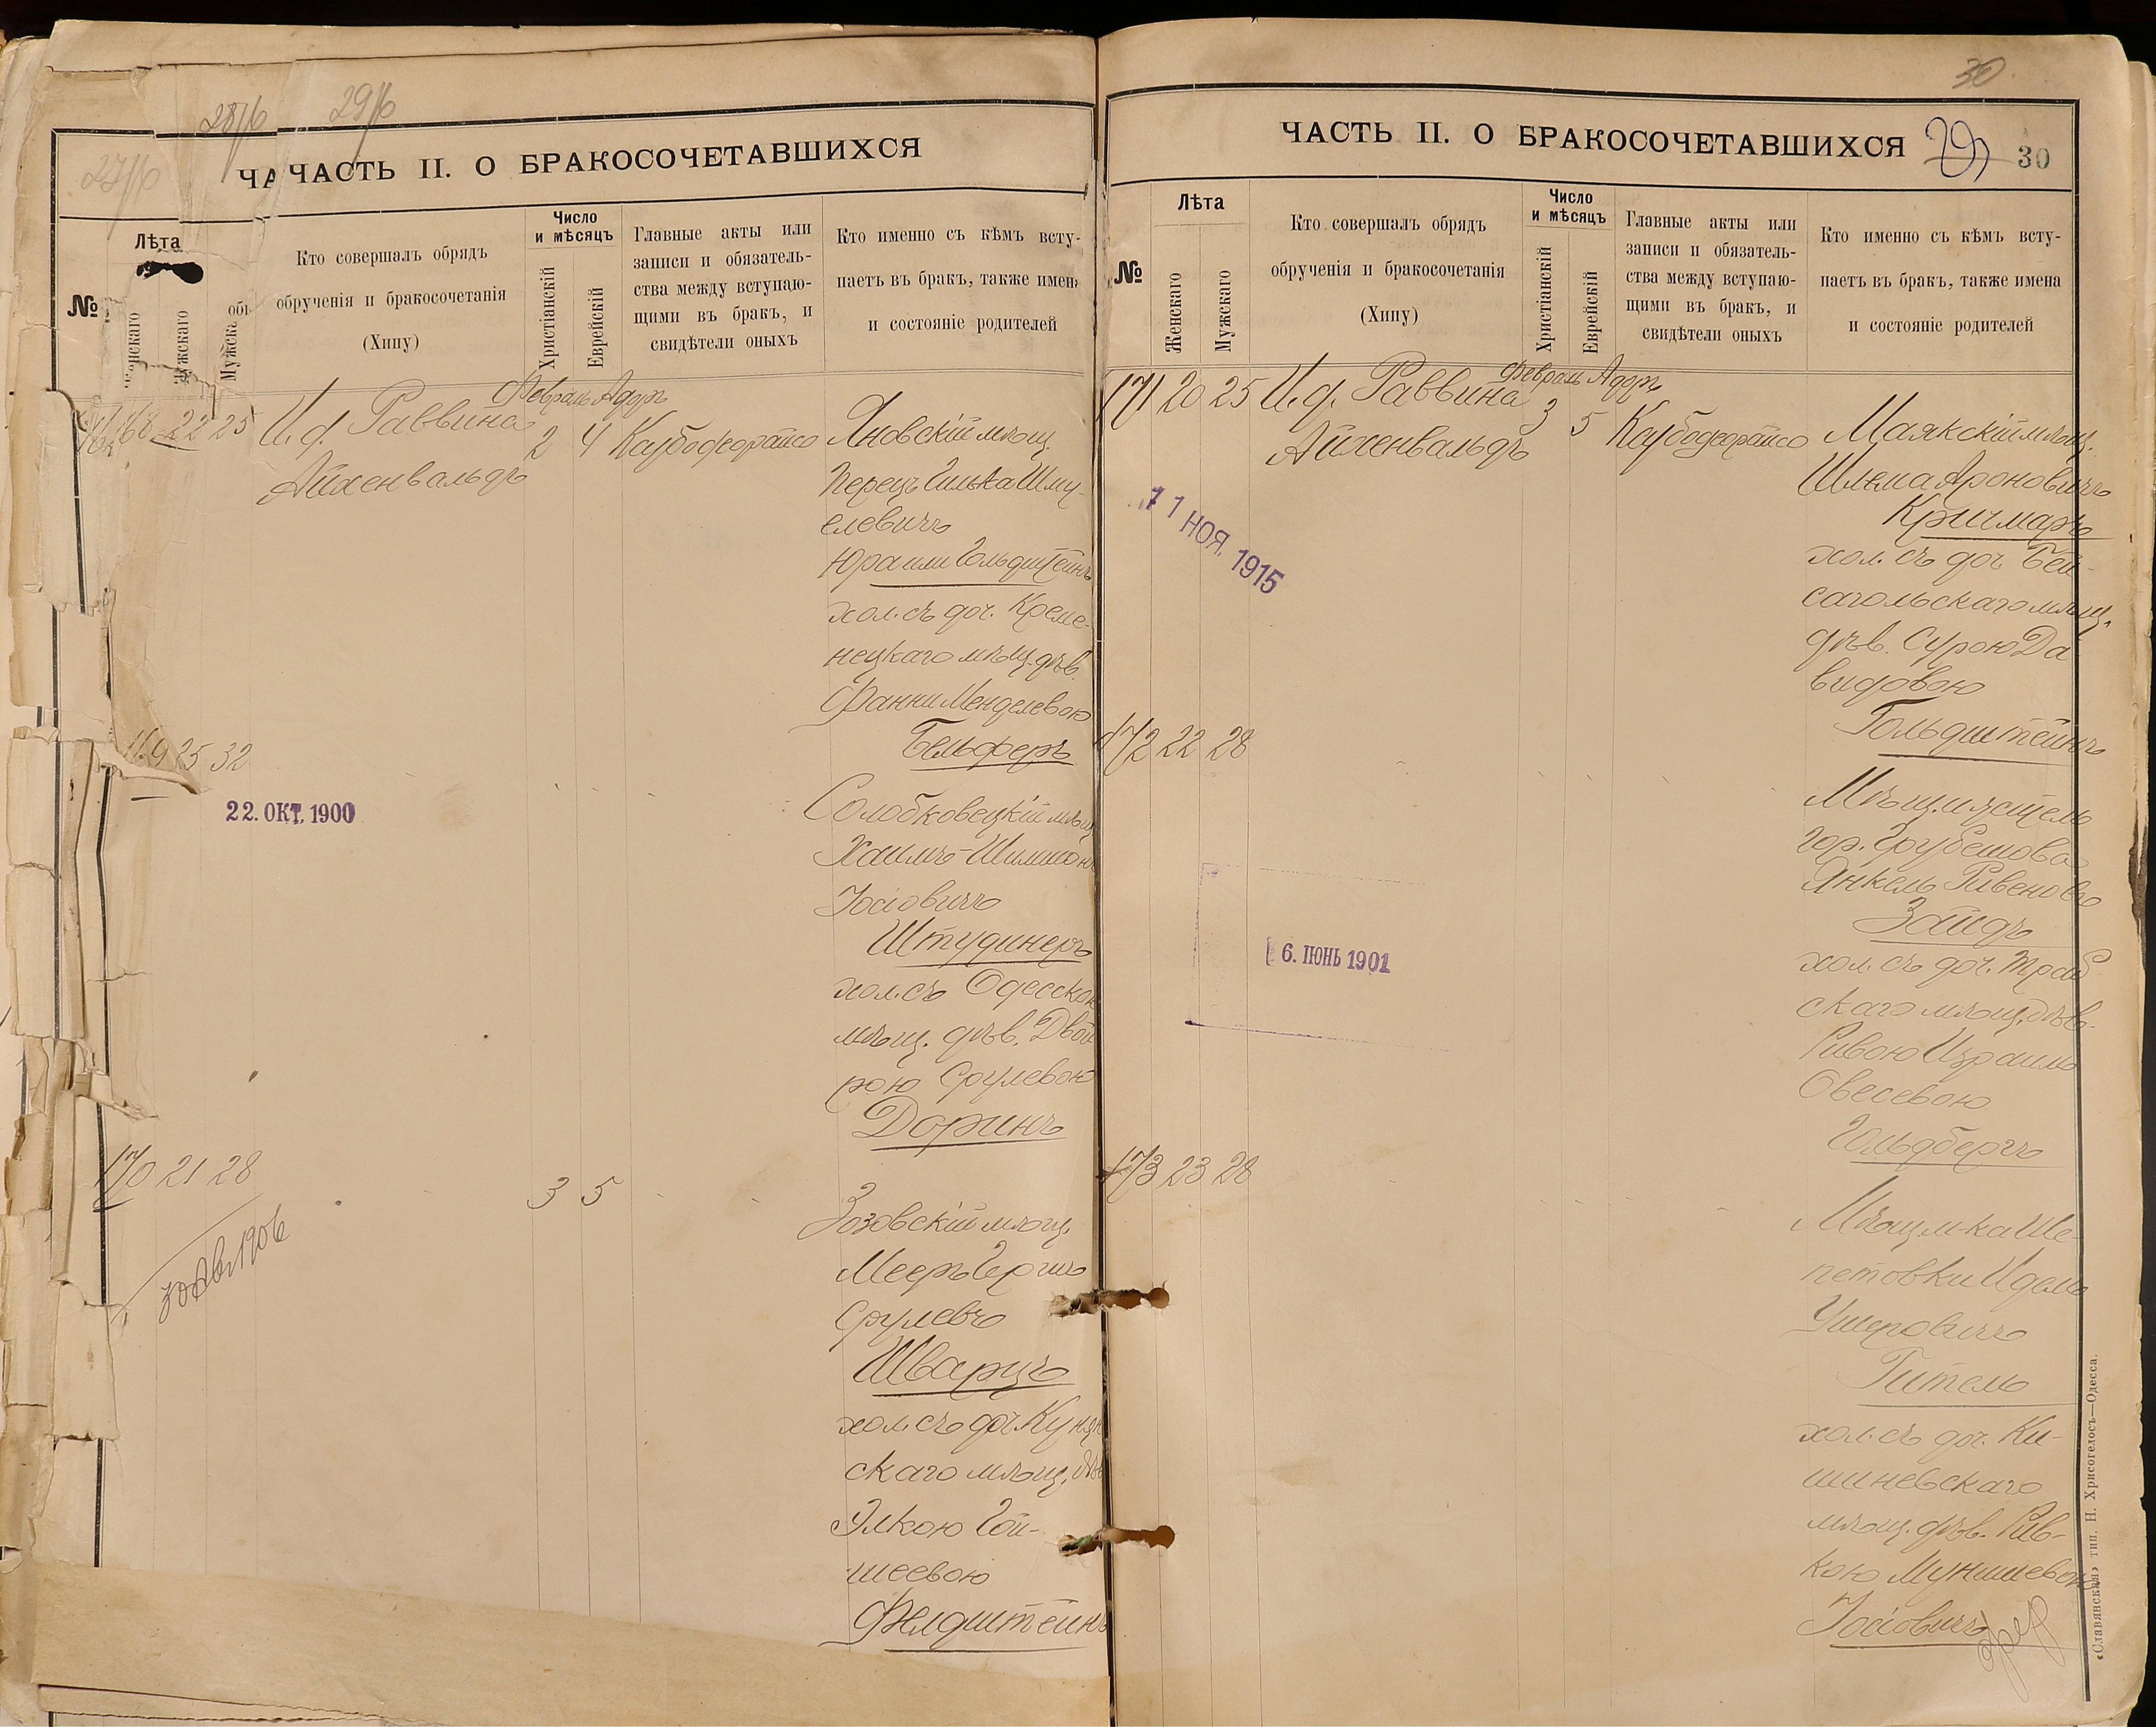 28/б
29/б
27/б
ЧА
ЧАСТЬ II. О БРАКОСОЧЕТАВШИХСЯ
№
Лѣта
Мужска
Кто совершалъ обрядъ
обрученія и бракосочетанія
(Хипу)
Число
и мѣсяцъ
Христіанскій
Еврейскій
Главные акты или
записи и обязатель-
ства между вступаю-
щими въ бракъ, и
свидѣтели оныхъ
Кто именно съ кѣмъ всту-
паетъ въ бракъ, также имена
и состояніе родителей
168 22 25 И. д. Раввина
Айхенвальдъ
Февраль Адаръ
2 4
Яновскій мѣщ.
Перецъ Гилька Шму-
елевичъ
Юраили Гольдштейнъ
хол. съ доч. Креме-
нецкаго мѣщ. дѣв.
Фанни Менделевою
Бельферъ
169 25 32
22. ОКТ. 1900
Солобковецкій мѣщ
Хаимъ-Шимшонъ
Іосіовичъ
Штудинеръ
хол. съ Одесскою
мѣщ. дѣв. Двой
рою Срулевою
Доринъ
170 21 28
3 5
30 Ав. 1906
Зозовскій мѣщ.
Мееръ Гершъ
Срулевъ
Шварцъ
хол. съ доч.
скаго мѣщ. дѣв
Элкою Гой-
шеевою
Фелдштейнъ
30
ЧАСТЬ II. О БРАКОСОЧЕТАВШИХСЯ
29
30
№
Лѣта
Женскаго
Мужскаго
Кто совершалъ обрядъ
обрученія и бракосочетанія
(Хипу)
Число
и мѣсяцъ
Христіанскій
Еврейскій
Главные акты или
записи и обязатель-
ства между вступаю-
щими въ бракъ, и
свидѣтели оныхъ
Кто именно съ кѣмъ всту-
паетъ въ бракъ, также имена
и состояніе родителей
171 20 25 И. д. Раввина
Айхенвальдъ
Февраль Адаръ
3 5
11 НОЯ. 1915
Маякскій мѣщ.
Шлема Ароновичъ
Кричмаръ
хол. съ доч. Бей-
сагольскаго мѣщ.
дѣв. Сурою Да
видовою
Гольдштейнъ
172 22 28
6. ІЮНЬ 1901
Мѣщ.
гор. Грубешова
Янкель Рувеновъ
Зайдъ
хол. съ доч.
скаго мѣщ. дѣв.
Ривою Израиль
Овсеевою
Гольдбергъ
173 23 28
Мѣщ. м-ка Ше-
петовки Идель
Ушеровичъ
Гительъ
хол. съ доч. Ки-
шиневскаго
мѣщ. дѣв. Рив-
кою Мунишевою
Іосіовичъ
«Славянская» тип. Н. Хрисогелосъ—Одесса.